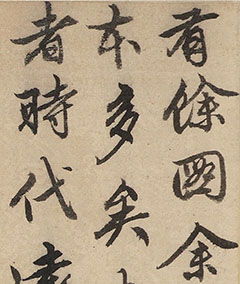 有餘國余
本多矣
者時代